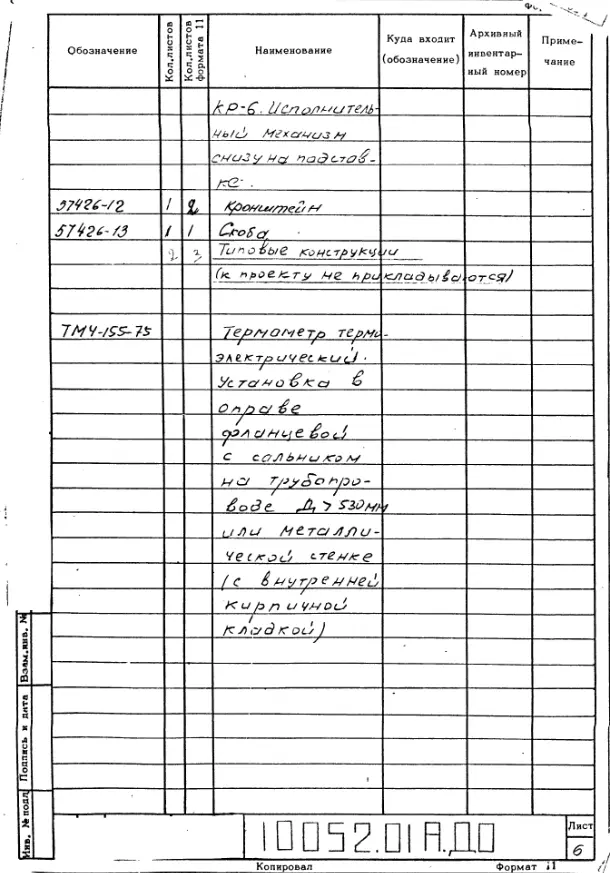 Обозначение
Кол.листов
Кол.листов формата 11
Наименование
Куда входит (обозначение)
Архивный инвентар- ный номер
Приме- чание
КР-6. Исполнитель-
ный механизм
снизу на подстав-
ке.
57426-12 1 2 Кронштейн
57426-13 1 1 Скоба
2 3 Типовые конструкции
(к проекту не прикладываются)
ТМ4-155-75 Термометр термо-
электрический.
Установка в
оправе
фланцевой
с сальником
на трубопро-
воде Д > 530мм
или металли-
ческой стенке
(с внутренней
кирпичной
кладкой)
Взам.инв. №
Подпись и дата
Инв. № подл
10052.01А.Д0
Лист
6
Копировал Формат 11